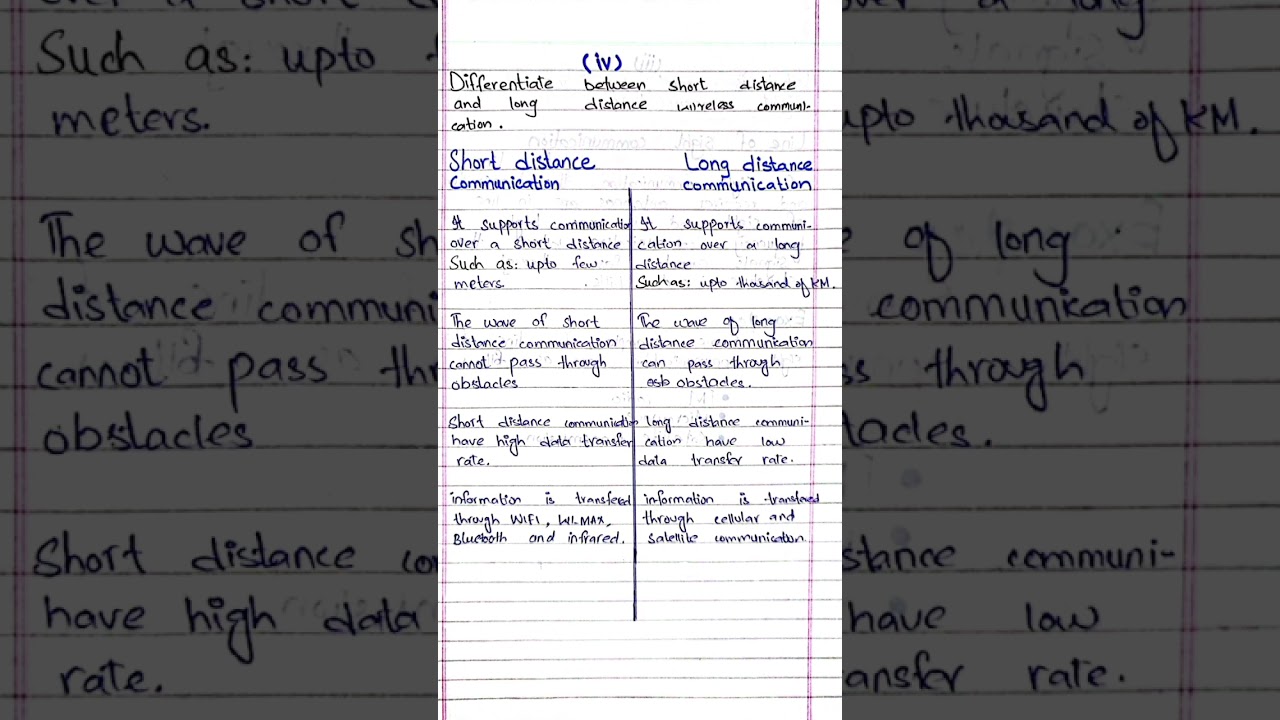 (iv)
Differentiate between short distance
and long distance wireless communi-
cation.
Short distance
Communication
It supports communication
over a short distance
Such as: upto few
meters.
The wave of short
distance communication
cannot pass through
obstacles
Short distance communication
have high data transfer
rate.
information is transfered
through WIFI, WI-MAX,
Bluetooth and infrared.
Long distance
communication
It supports communi-
cation over a long
distance
Such as: upto thasand of KM.
The wave of long
distance communication
can pass through
obstacles.
long distance communi-
cation have low
data transfer rate.
information is transfered
through cellular and
Satellite communication